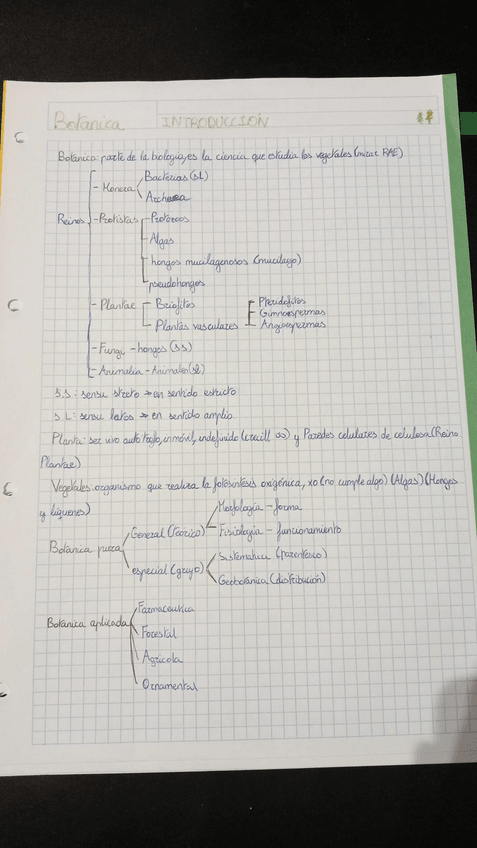 Botánica INTRODUCCIÓN
Botánica: parte de la biología, es la ciencia que estudia los vegetales (mirar RAE)
Reinos
- Monera
Bacterias (s.L)
Archaea
- Protistas
- Protozoos
- Algas
- hongos mucilaginosos (mucilago)
- pseudohongos
- Plantae
Briofitos
Plantas vasculares
Pteridofitos
Gimnospermas
Angiospermas
- Fungi - hongos (s.s)
- Animalia - Animales (sL)
s.s: sensu stricto → en sentido estricto
s.L: sensu latus → en sentido amplio
Planta: ser vivo autótrofo, inmóvil, indefinido (crecill ∞) y Paredes celulares de celulosa (Reino
Plantae)
Vegetales: organismo que realiza la fotosíntesis oxigénica, xo (no cumple algo) (Algas) (Hongos
y líquenes)
Botánica pura
General (Teórico)
Morfología - forma
Fisiología - funcionamiento
especial (grupo)
Sistemática (parentesco)
Geobotánica (distribución)
Botánica aplicada
Farmaceutica
Forestal
Agrícola
Ornamental